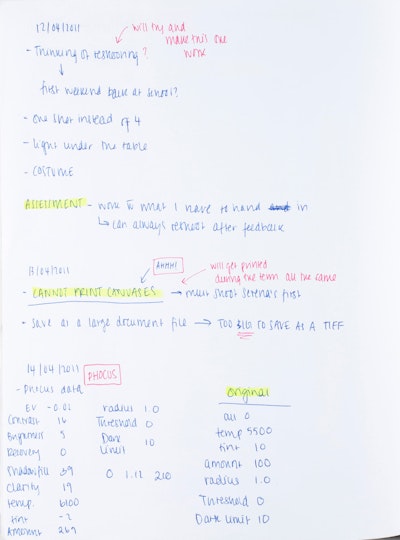 12/04/2011
will try and
make this one
work
- Thinking of reshooting?
first weekend back at school?
- one shot instead of 4
- light under the table
- COSTUME
ASSESSMENT - work w what I have to hand in
can always reshoot after feedback
AHHH!
13/04/2011
will get printed
during the term all the same
- CANNOT PRINT CANVASES → must shoot Serena's first
- save as a large document file → TOO BIG TO SAVE AS A TIFF
14/04/2011 PHOCUS
- Phocus data
EV -0.02
Contrast 16
Brightness 5
Recovery 0
Shadowfill 39
Clarity 19
temp. 6100
tint -2
Amount 269
radius 1.0
Threshold 0
Dark 10
limit
0 1.12 210
original
all 0
temp 5500
tint 10
amount 100
radius 1.0
Threshold 0
Dark limit 10